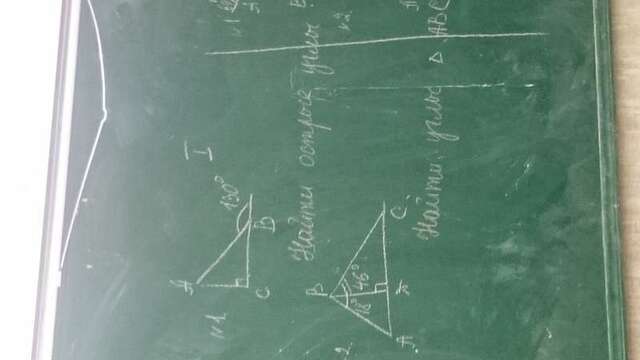 I
№1
A
130°
C
B
Найти острые углы
2.
B
18°
46°
A
K
C
Найти углы Δ ABC
№1
A
№2